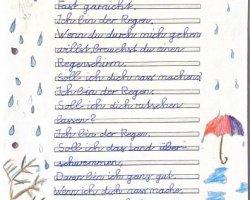 Fast garnicht.
Ich bin der Regen,
Wenn du durch mich gehen
willst, brauchst du einen
Regenschirm.
Soll ich dich nass machen?
Ich bin der Regen.
Soll ich dich rutschen
lassen?
Ich bin der Regen.
Soll ich das Land über-
schwemmen,
Dann bin ich ganz gut.
Wenn ich dich nass mache,